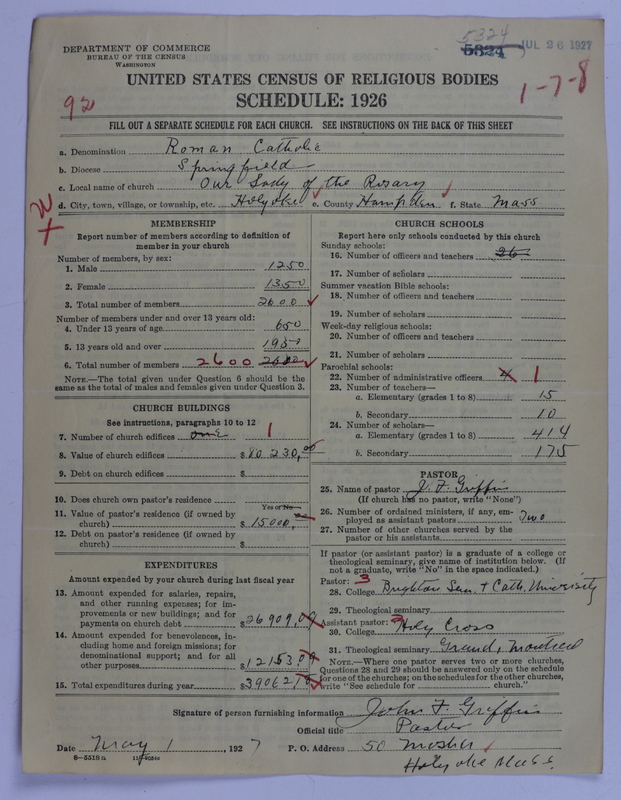 5324
5324 JUL 26 1927
DEPARTMENT OF COMMERCE
BUREAU OF THE CENSUS
WASHINGTON
UNITED STATES CENSUS OF RELIGIOUS BODIES
SCHEDULE: 1926
92
1-7-8
FILL OUT A SEPARATE SCHEDULE FOR EACH CHURCH. SEE INSTRUCTIONS ON THE BACK OF THIS SHEET
a. Denomination Roman Catholic
b. Diocese Springfield
c. Local name of church Our Lady of the Rosary
d. City, town, village, or township, etc. Holyoke e. County Hampden f. State Mass
MEMBERSHIP
Report number of members according to definition of
member in your church
Number of members, by sex:
1. Male 1250
2. Female 1350
3. Total number of members 2600
Number of members under and over 13 years old:
4. Under 13 years of age 650
5. 13 years old and over 1950
6. Total number of members 2600 2600
NOTE.—The total given under Question 6 should be the
same as the total of males and females given under Question 3.
CHURCH BUILDINGS
See instructions, paragraphs 10 to 12
7. Number of church edifices one 1
8. Value of church edifices $ 80 230,00
9. Debt on church edifices $
10. Does church own pastor's residence
Yes or No
11. Value of pastor's residence (if owned by
church) $ 15000,
12. Debt on pastor's residence (if owned by
church) $
EXPENDITURES
Amount expended by your church during last fiscal year
13. Amount expended for salaries, repairs,
and other running expenses; for im-
provements or new buildings; and for
payments on church debt $ 26909,09
14. Amount expended for benevolences, in-
cluding home and foreign missions; for
denominational support; and for all
other purposes $ 12153,09
15. Total expenditures during year $ 39062,18
CHURCH SCHOOLS
Report here only schools conducted by this church
Sunday schools:
16. Number of officers and teachers 26
17. Number of scholars
Summer vacation Bible schools:
18. Number of officers and teachers
19. Number of scholars
Week-day religious schools:
20. Number of officers and teachers
21. Number of scholars
Parochial schools:
22. Number of administrative officers 1
23. Number of teachers—
a. Elementary (grades 1 to 8) 15
b. Secondary 10
24. Number of scholars—
a. Elementary (grades 1 to 8) 414
b. Secondary 175
PASTOR
25. Name of pastor J. F. Griffin
(If church has no pastor, write "None")
26. Number of ordained ministers, if any, em-
ployed as assistant pastors Two
27. Number of other churches served by the
pastor or his assistants
If pastor (or assistant pastor) is a graduate of a college or
theological seminary, give name of institution below. (If
not a graduate, write "No" in the space indicated.)
Pastor: 3
28. College Brighton Sem. + Cath. University
29. Theological seminary
Assistant pastor:
30. College Holy Cross
31. Theological seminary Grand, Montreal
NOTE.—Where one pastor serves two or more churches,
Questions 28 and 29 should be answered only on the schedule
for one of the churches; on the schedules for the other churches,
write "See schedule for church."
Signature of person furnishing information John F Griffin
Official title Pastor
Date May 1, 1927 P. O. Address 50 Mosher
Holyoke Mass.